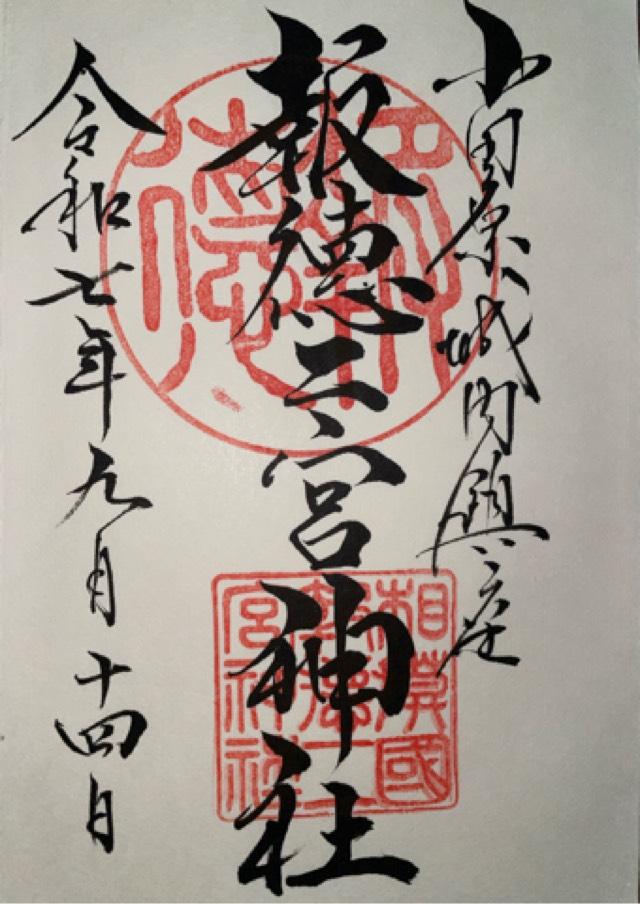 小田原城内鎮座
報徳二宮神社
令和七年九月十四日
報徳
相模國
報徳二
宮神社